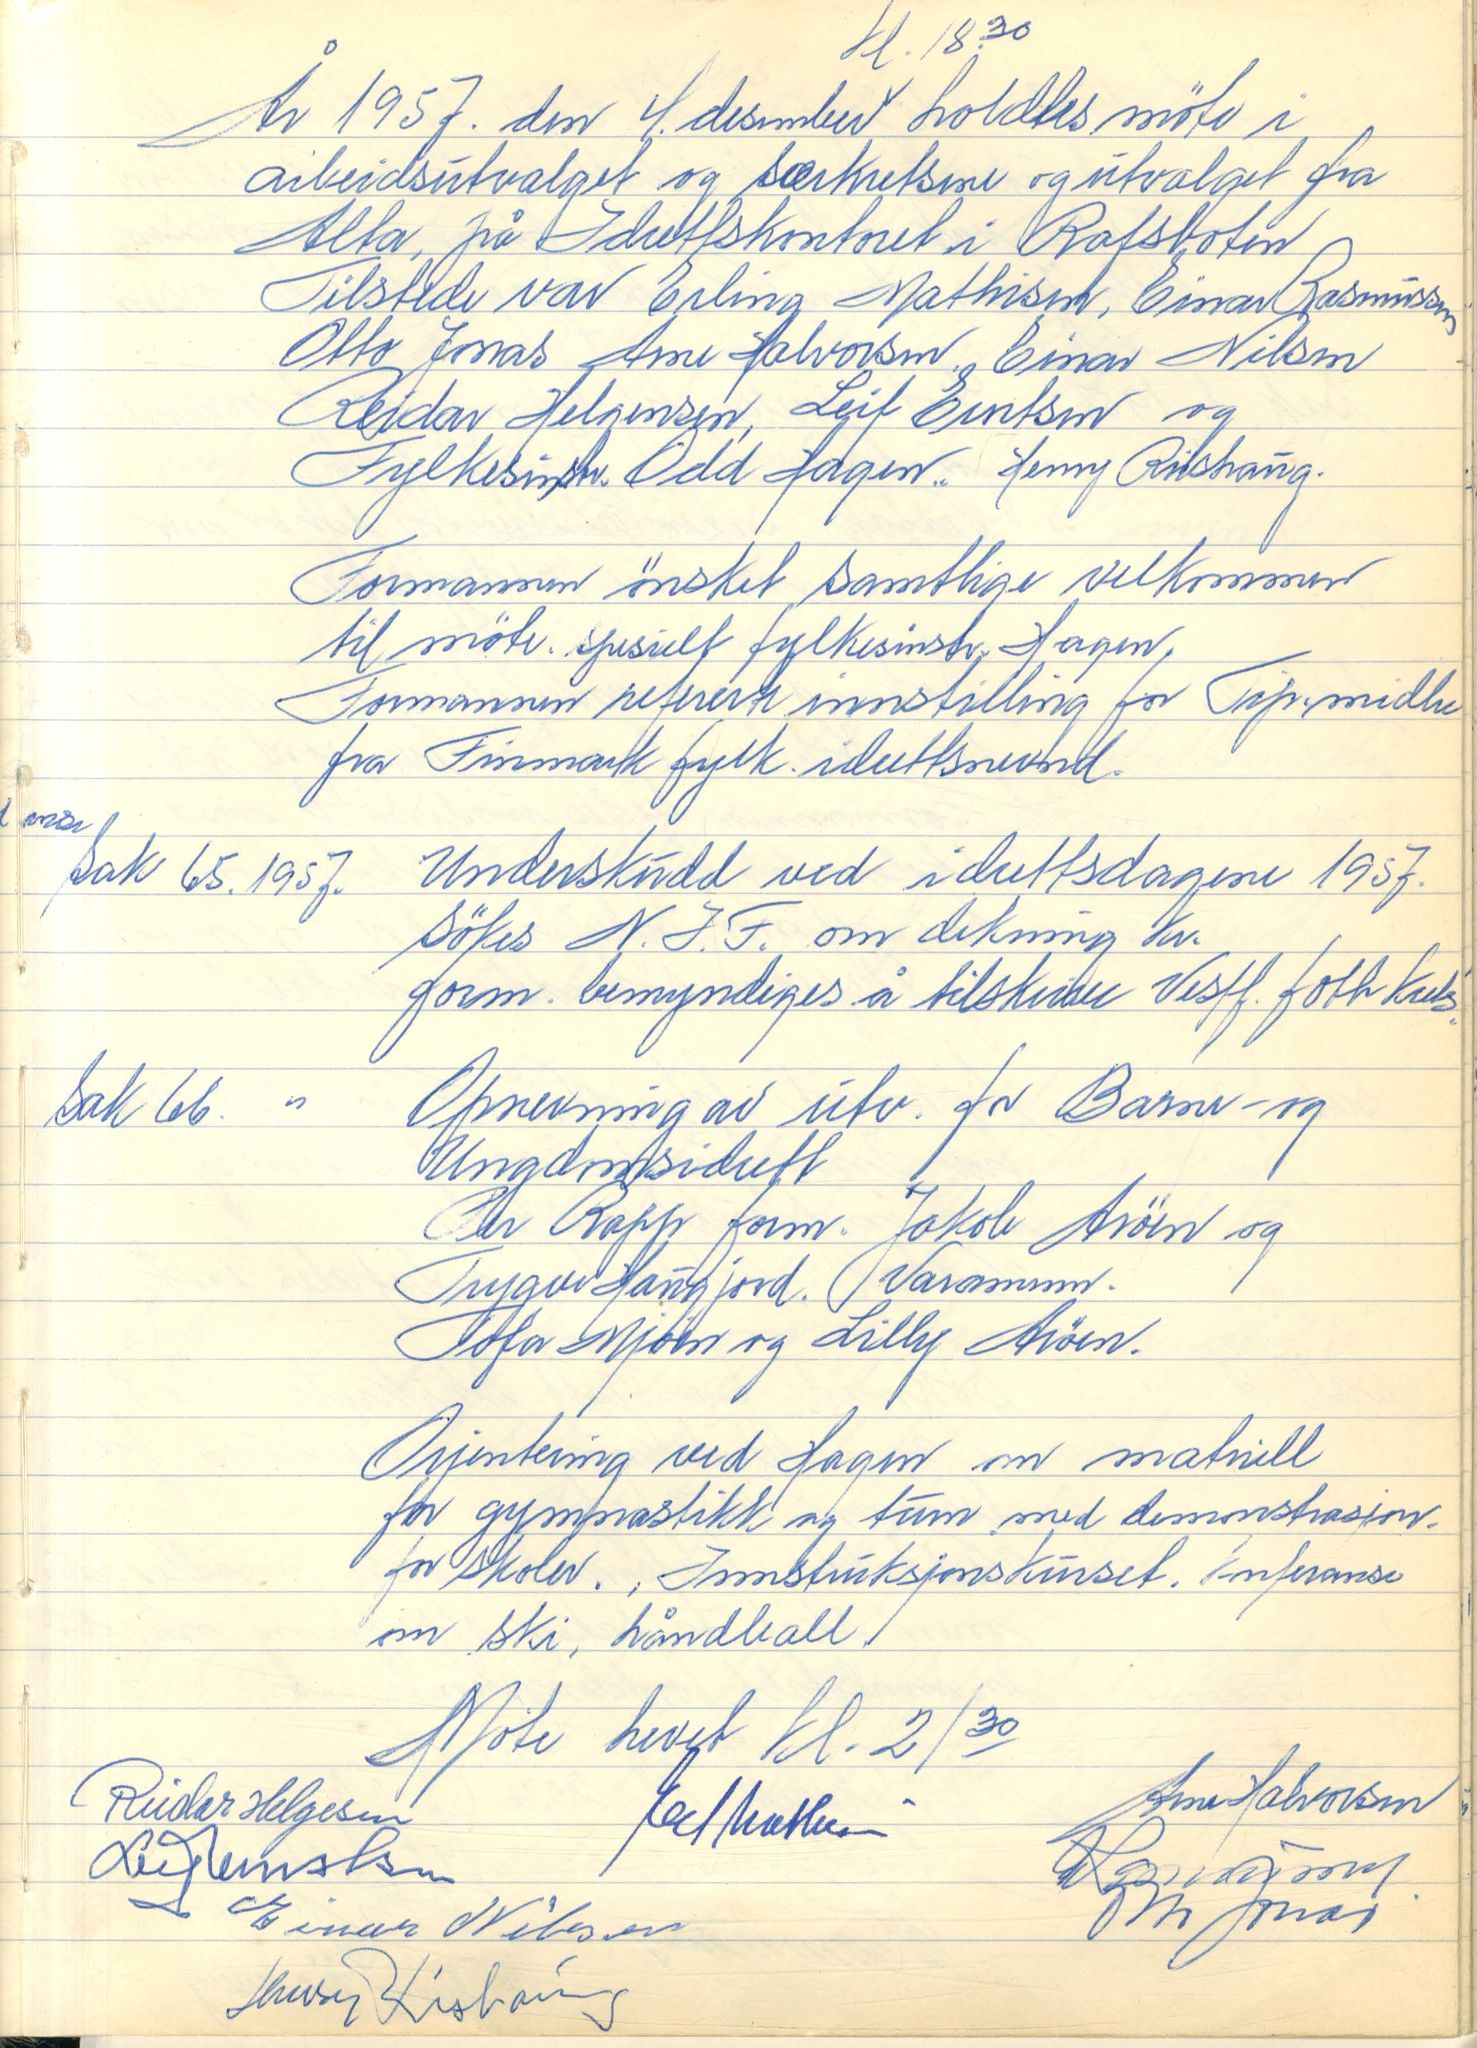 kl. 18.30
År 1957. den 4. desember holdtes möte i
arbeidsutvalget og særkretsene og utvalget fra
Alta, på Idrettskontoret i Rafsboten
Tilstede var Erling Mathisen, Einar Rasmussen
Otto Jonas Arne Halvorsen, Einar Nilsen
Reidar Helgensen, Leif Erntsen og
Fylkesinstr. Odd Hagen.. Henry Rishaug.
Formannen önsket samtlige velkommen
til möte. spesielt fylkesinstr. Hagen,
Formannen refererte innstilling for Tip.midler
fra Finmark fylk. idrettsnevnd.
Sak 65. 1957. Underskudd ved idrettsdagene 1957.
sökes N.I.F. om dekning kr.
form. bemyndiges å tilskrive Vestf. fotb krets.
Sak 66. " Opnevning av utv. for Barne- og
Ungdomsidrett
Per Rapp form. Jakob Aröen og
Trygve Haugjord. Varamenn.
Tofa Mjöen og Lilly Aröen.
Orjentering ved Hagen om matriell
for gymnastikk og turn med demonstrasjon.
for skoler. , Innstruksjonskurset.
om ski, håndball.
Möte hevet kl. 21 30
Reidar Helgesen
Arne Halvorsen
Einar Nilsen
Otto Jonas
Henry Rishaug